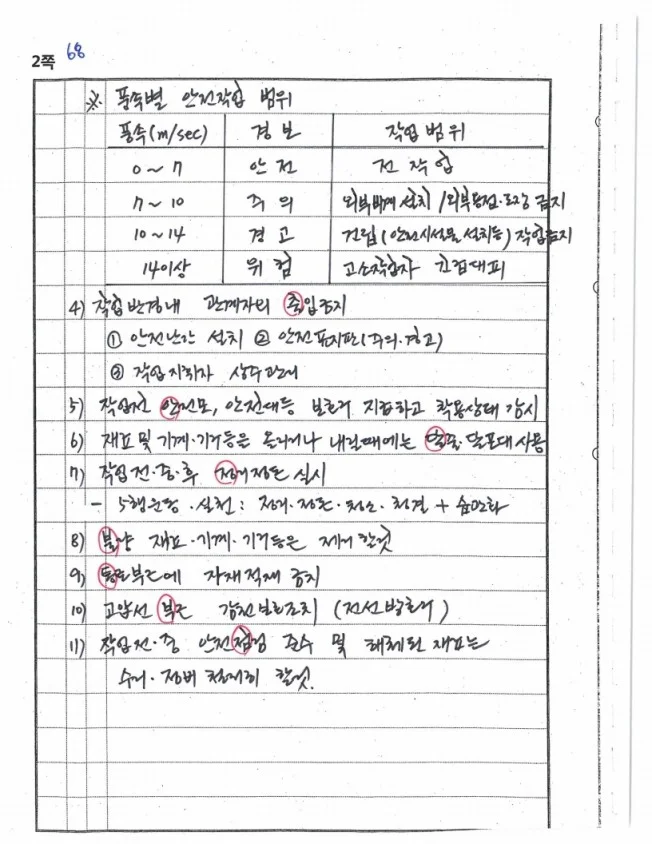 2쪽 68
※ 풍속별 안전작업 범위
풍속(m/sec) 경보 작업범위
0~7 안전 전작업
7~10 주의 외부비계 설치/외부용접·도장 금지
10~14 경고 건립(안전시설물 설치등) 작업금지
14이상 위험 고소작업자 긴급대피
4) 작업반경내 관계자외 출입금지
① 안전난간 설치 ② 안전표지판(주의·경고)
③ 작업지휘자 상주관리
5) 작업전 안전모, 안전대등 보호구 지급하고 착용상태 감시
6) 재료 및 기계·기구등은 올리거나 내릴때에는 달줄·달포대 사용
7) 작업 전·중·후 정리정돈 실시
- 5행운동·실천: 정리·정돈·청소·청결 + 습관화
8) 불량 재료·기계·기구등은 제거 할것
9) 통로부근에 자재적재 금지
10) 고압선 부근 감전보호조치 (전선방호구)
11) 작업전·중 안전점검 준수 및 해체된 재료는
수리·정비 철저히 할것.